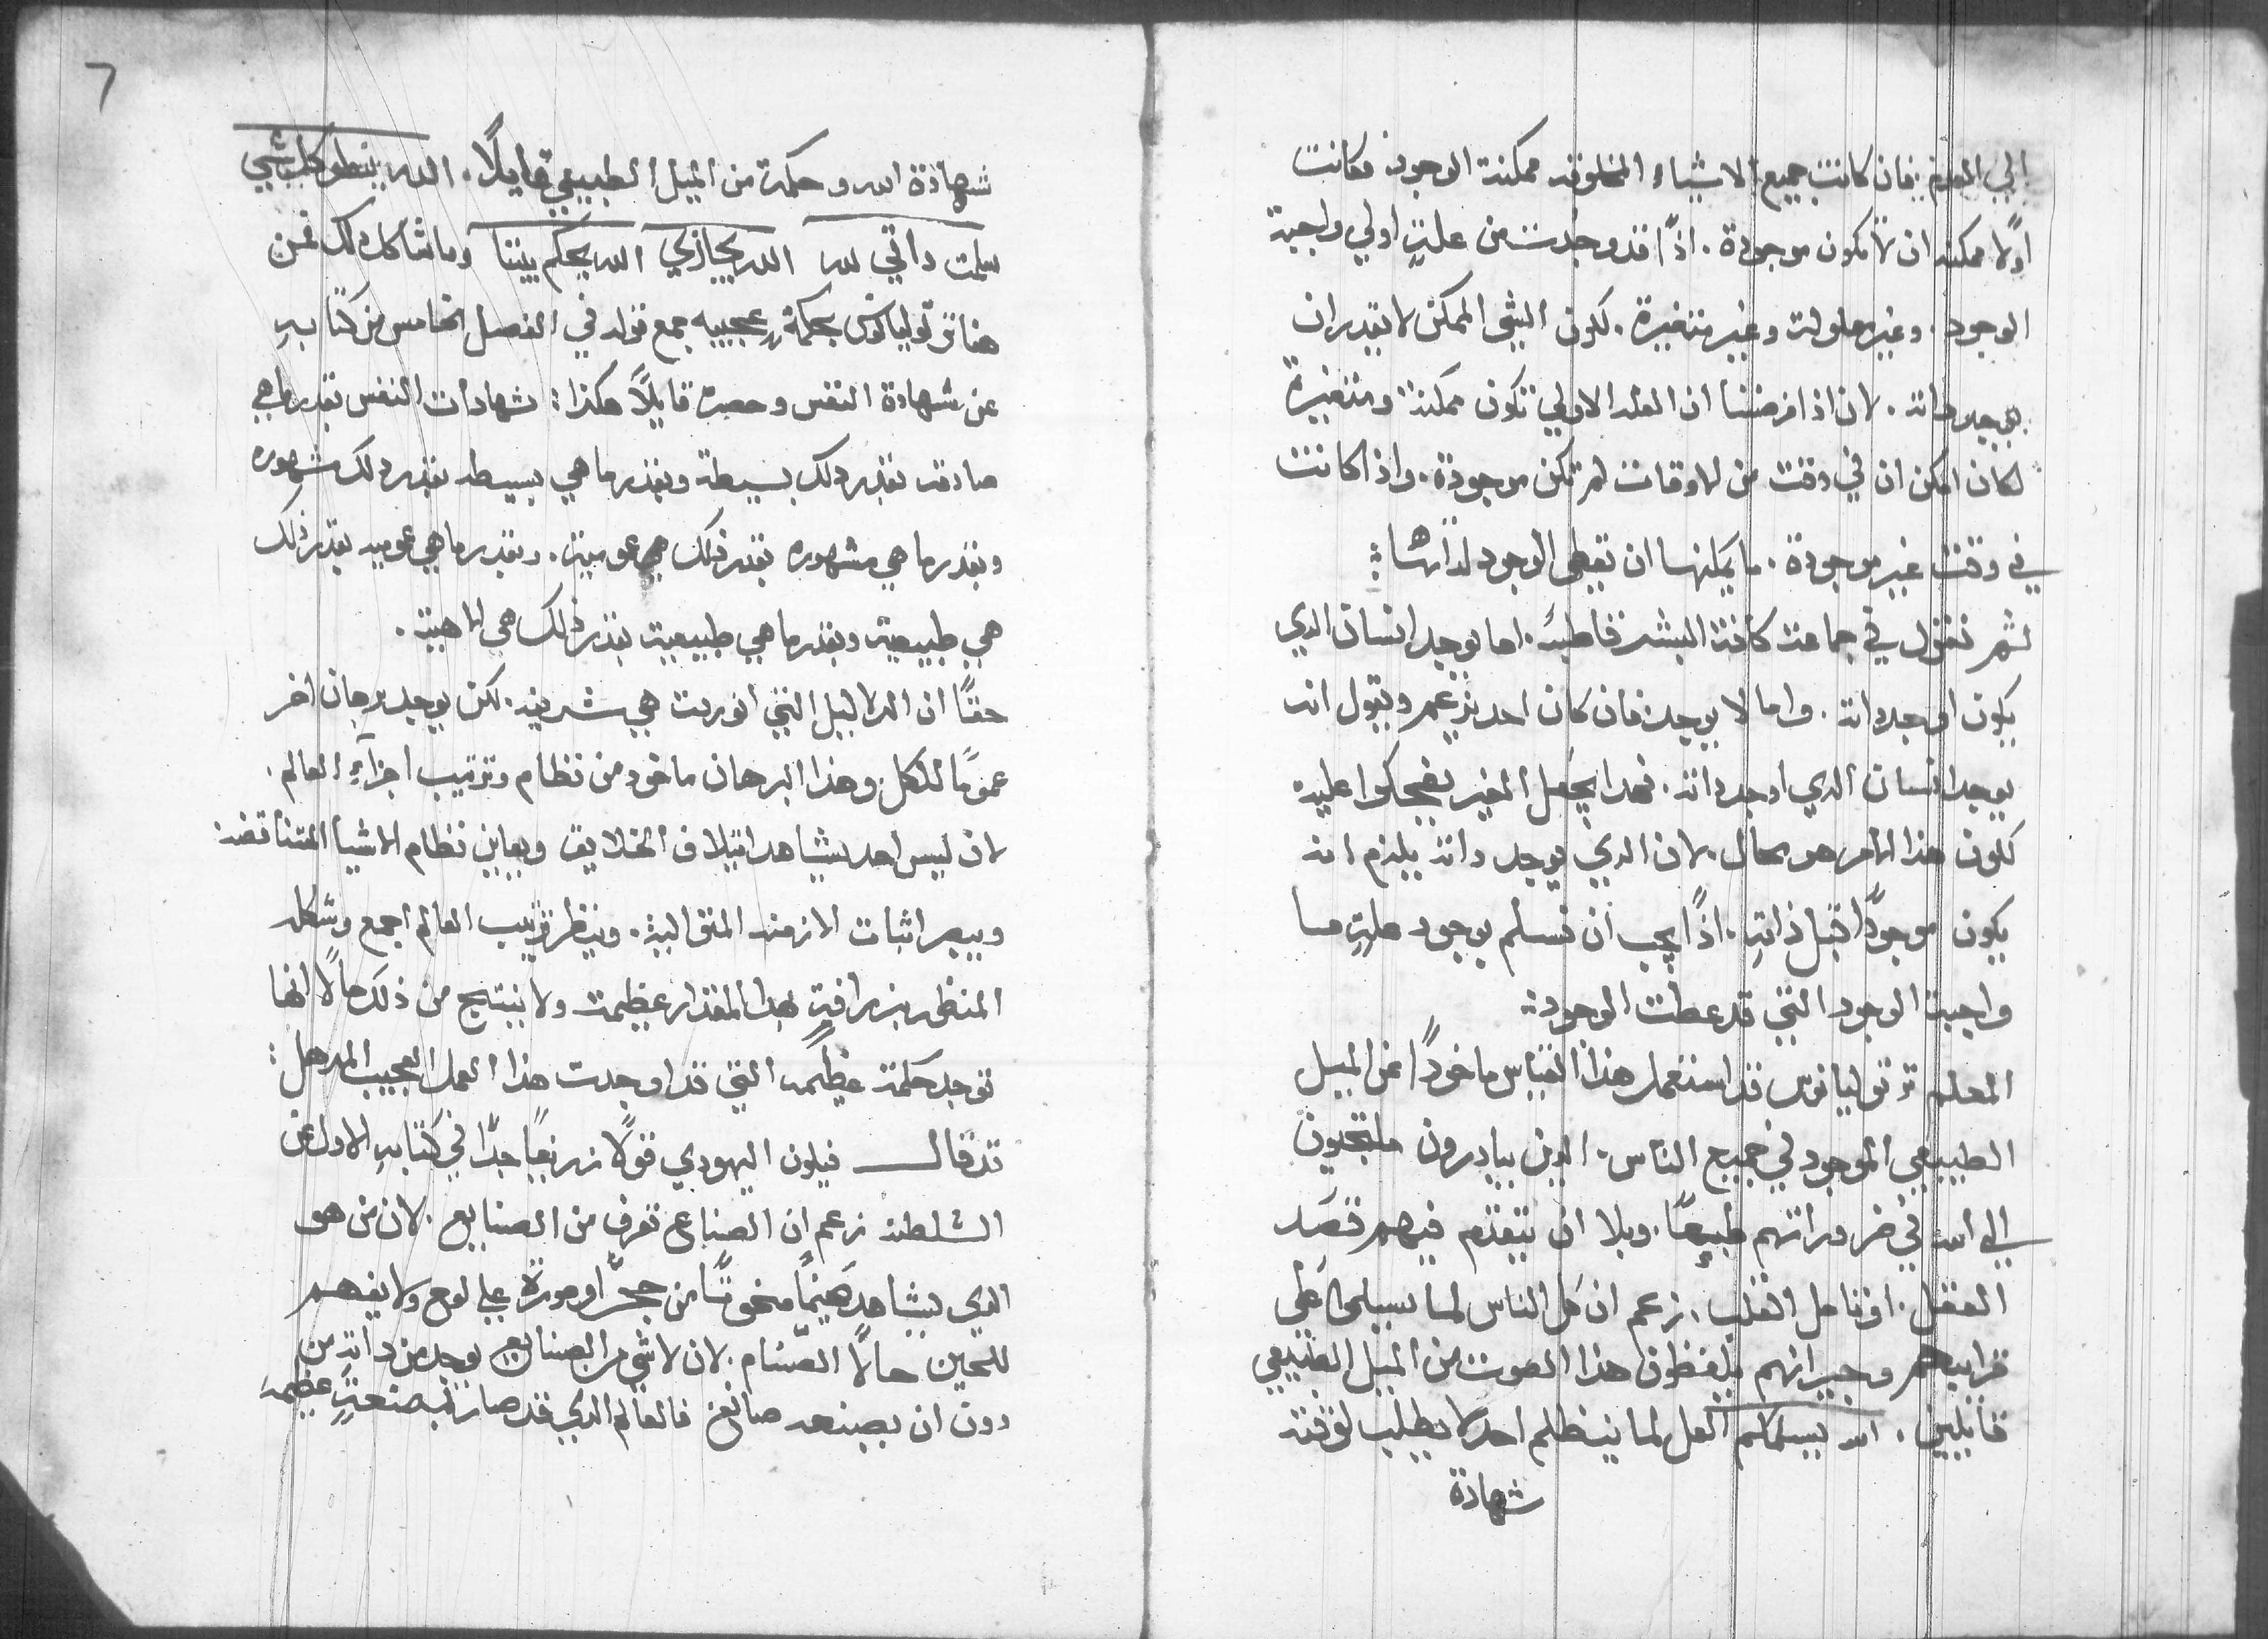 الي العدم. فان كانت جميع الاشياء المخلوقه ممكنة الوجود وكانت
اولًا ممكنه ان لا تكون موجودة. اذًا قد وجدت من علةٍ اولي واجبة
الوجود. وغير معلولة وغير متغيرة. لكون الشي الممكن لا يقدر ان
يوجد ذاته. لان اذا فرضنا ان العله الاولي تكون ممكنة ومتغيرة
لكان امكن ان في وقت من الاوقات لم تكن موجودة. واذا كانت
في وقت غير موجودة. ما يمكنها ان تعطي الوجود لذاتها:
ثم نقول في جماعة كافة البشر قاطبةً. اما يوجد انسان الدي
يكون اوجد داته. واما لا يوجد. فان كان احد يزعم ويقول انه
يوجد انسان الدي اوجد داته. فهدا يجعل الغير يضحكوا عليه
لكون هذا الامر هو محال. لان الدي يوجد داته يلزم انه
يكون موجودًا قبل ذاتهِ. اذًا يجب ان نسلم بوجود علةٍ ما
واجبة الوجود التي قد عطت الوجود:
المعلم ترتوليانوس قد استعمل هذا القياس ماخودًا من الميل
الطبيعي الموجود في جميع الناس. الدين يبادرون ملتجيون
الي الله في ضروراتهم طبعًا. وبلا ان يتقدم فيهم قصَد
العقل. او تامل القلب. زعم ان كل الناس لما يسيلوا علي
قرايبهم وجيرانهم يلفظون هذا الصوت من الميل الطبيعي
قايلين. الله يسلمكم العل لما ينظلم احد لا يطلب لوقته
شهادة
٦
شهاذة الله وحكمة من الميل الطبيعي قايلًا. الله ينظر كل شي
سلمت داتي لله الله يجازي الله يحكم بيننا وما شاكل دلك فمن
هنا ترتوليانوس بحكمةٍ عجيبه جمع قوله في الفصل الخامس من كتابهِ
عن شهادة النفس وحصره قايلًا هكذا: شهادات النفس بقدر ما هي
صادقه بقدر دلك بسيطة وبقدر ما هي بسيطه بقدر دلك مشهوره
وبقدر ما هي مشهوره بقدر ذلك هي عوميه. وبقدر ما هي عوميه بقدر ذلك
هي طبيعية وبقدر ما هي طبيعية بقدر ذلك هي الاهية.
حقًا ان الدلايل التي انوردت هي شريفه. لكن يوجد برهان اخر
عمومًا للكل. وهذا البرهان ماخود من نظام وترتيب اجزآءِ العالم.
لان ليس احد يشاهد ايتلاف الخلايق ويعاين نظام الاشيا المتناقضه
ويبصر اثبات الازمنه المتواليه. وينظر ترتيب العالم اجمع وشكله
المنظر بزرافةٍ بهدا المقدار عظيمة ولا ينتج من ذلك حالًا انها
توجد حكمة عظيمه التي قد اوجدت هذا العمل العجيب المدهل:
قد قال فيلون اليهودي قولًا رفيعًا جدًا في كتابهِ الاول عن
السلطنه زعم ان الصناع تعرف من الصنايع. لان من هو
الدي يشاهد صنمًا منحوتًا من حجرٍ او صورةً علي لوح ولا يفهم
للحين حالًا الصنام. لان لا شي من الصنايع يوجد من داتهِ من
دون ان يصنعه صانعٌ فالعالم الدي قد صار بصنعةٍ عظيمه